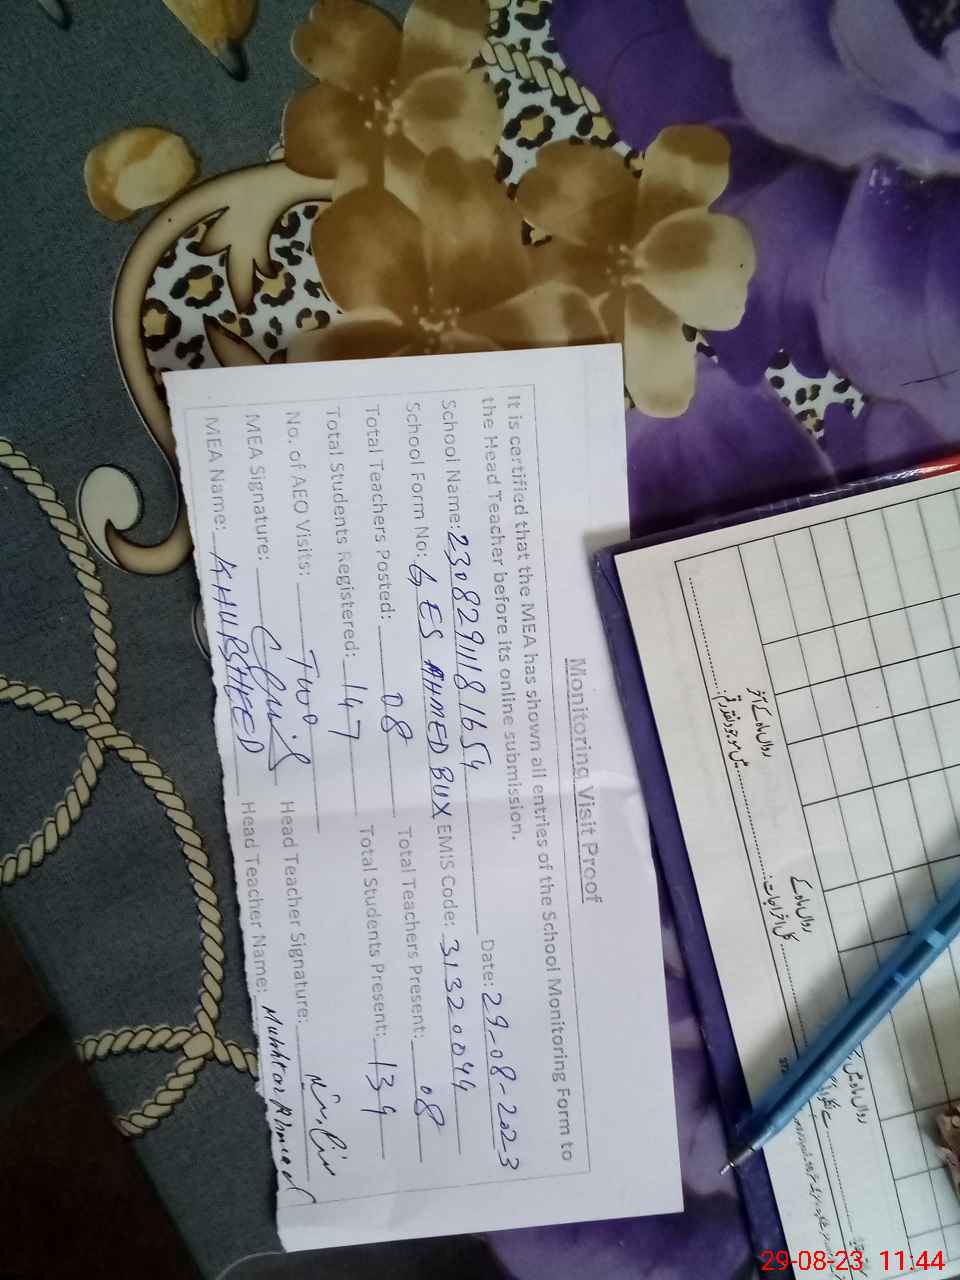 Monitoring Visit Proof
It is certified that the MEA has shown all entries of the School Monitoring Form to
the Head Teacher before its online submission.
School Name: 23082911181654 Date: 29-08-2023
School Form No: GES AHMED BUX EMIS Code: 31320044
Total Teachers Posted: 08 Total Teachers Present: 08
Total Students Registered: 147 Total Students Present: 139
No. of AEO Visits: Two
MEA Signature: Head Teacher Signature:
MEA Name: KHURSHEED Head Teacher Name: Mukhtar Ahmad
رواں ماہ کے آخر
میں موجود نقد رقم:
رواں ماہ کے
کل اخراجات:
29-08-23 11:44